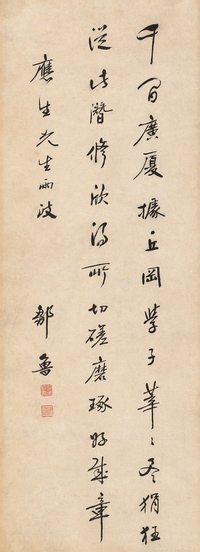 千間廣廈據丘岡學子莘々各狷狂
從此潛修欣得所切磋磨琢好成章
應生先生雨政
鄒魯